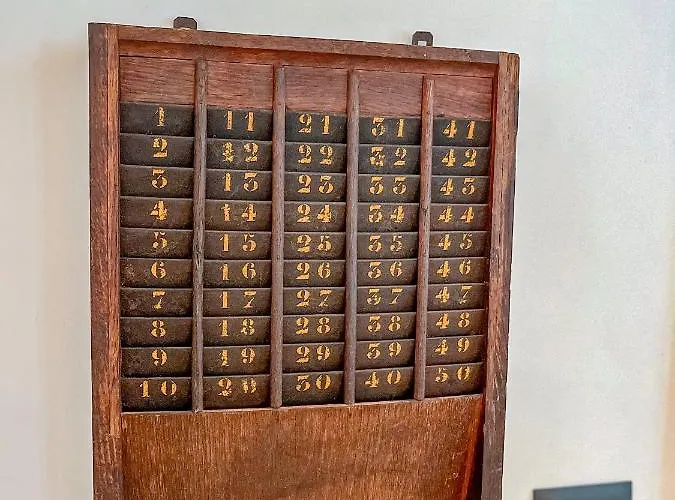 1 11 21 31 41
2 12 22 32 42
3 13 23 33 43
4 14 24 34 44
5 15 25 35 45
6 16 26 36 46
7 17 27 37 47
8 18 28 38 48
9 19 29 39 49
10 20 30 40 50